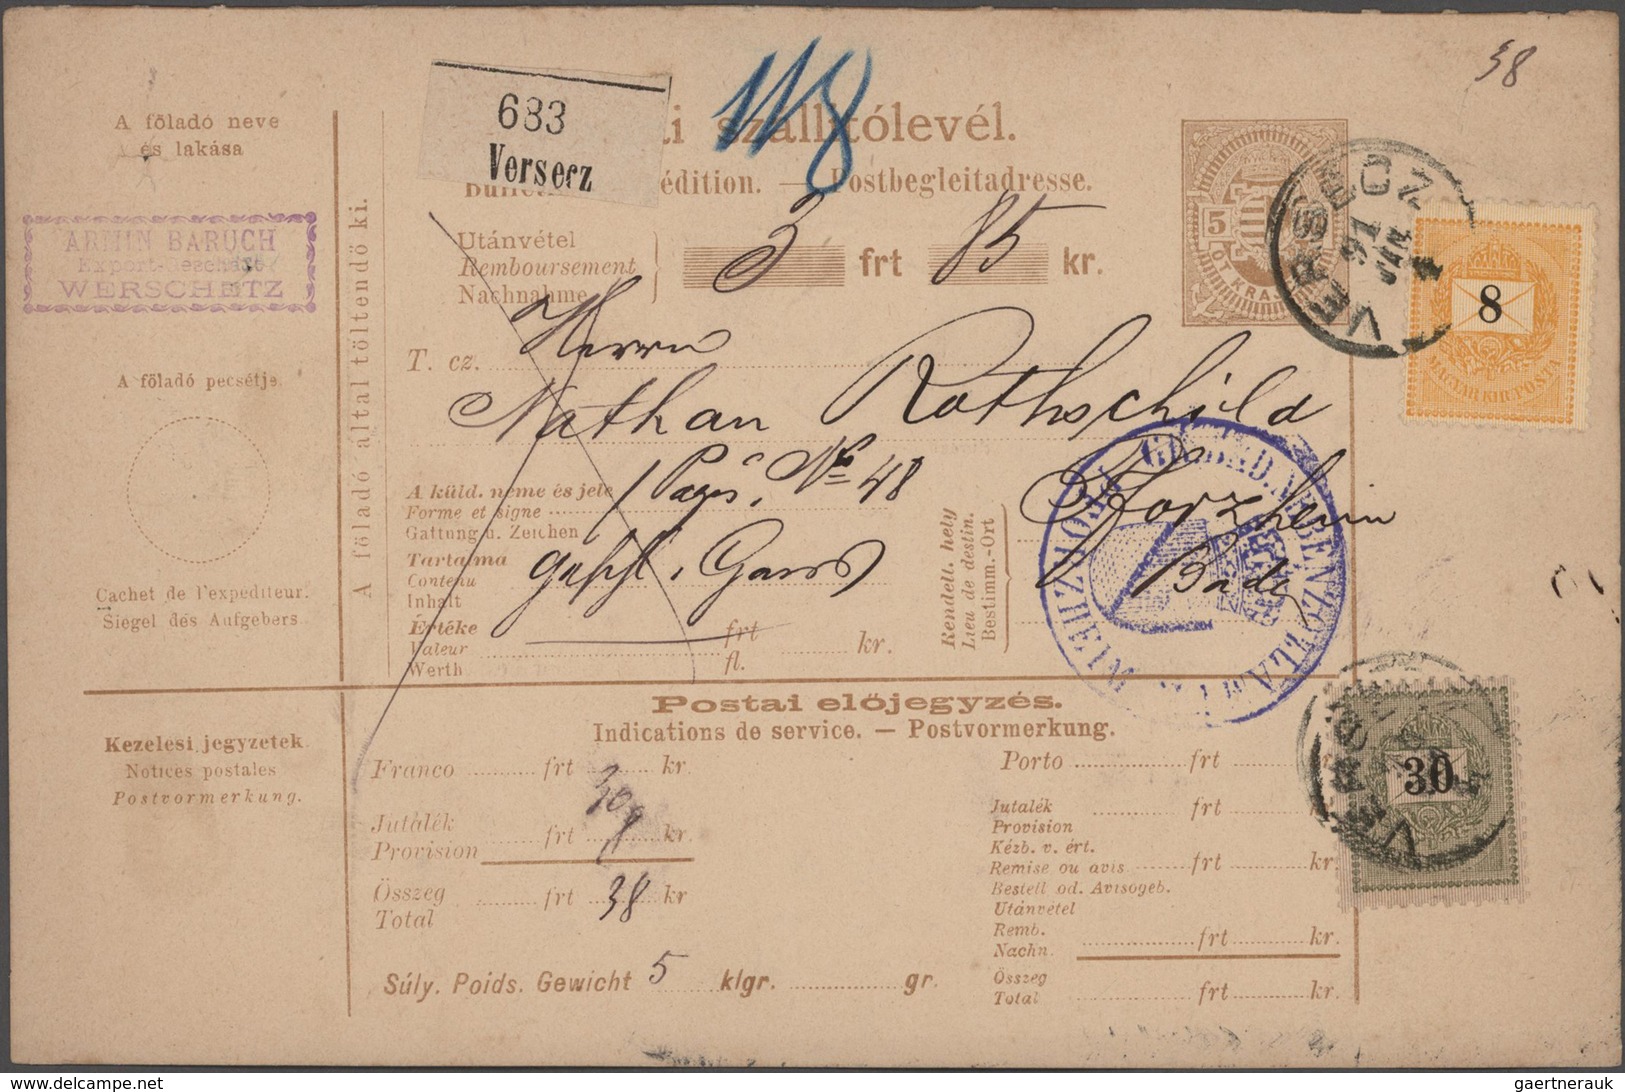 38
118
683
Versecz
szállítólevél.
édition. — Postbegleitadresse.
A föladó neve
és lakása
ARMIN BARUCH
Export-Geschäft
WERSCHETZ
A föladó pecsétje.
Cachet de l'expediteur.
Siegel des Aufgebers
A föladó által töltendő ki.
Utánvétel
Remboursement
Nachnahme
3 frt 85 kr.
5 5
ÖT KRAJ
VERSECZ
91
JAN
8
MAGYAR KIR. POSTA
T. cz.
Herrn
Nathan Rothschild
A küld. neme és jele
Forme et signe
Gattung u. Zeichen
No 48
Tartalma
Contenu
Inhalt
Értéke frt kr.
Valeur
Werth fl.
Rendelt. hely
Lieu de destin.
Bestimm.-Ort
Pforzheim
Baden
Postai előjegyzés.
Indications de service. — Postvormerkung.
Kezelési jegyzetek
Notices postales
Postvormerkung.
Franco frt 30 kr
Jutalék
Provision frt kr.
Összeg
Total frt 38 kr
Porto frt
Jutalék
Provision frt
Kézb. v. ért.
Remise ou avis frt kr.
Bestell od. Avisogeb.
Utánvétel
Remb.
Nachn. frt kr.
Összeg
Total frt kr.
30
Súly. Poids. Gewicht 5 klgr. gr.
www.delcampe.net
gaertnerauk